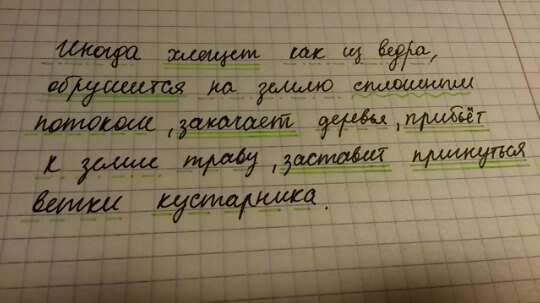 Иногда хлещет как из ведра,
обрушится на землю сплошным
потоком, закачает деревья, прибьёт
к земле траву, заставит пригнуться
ветки кустарника.